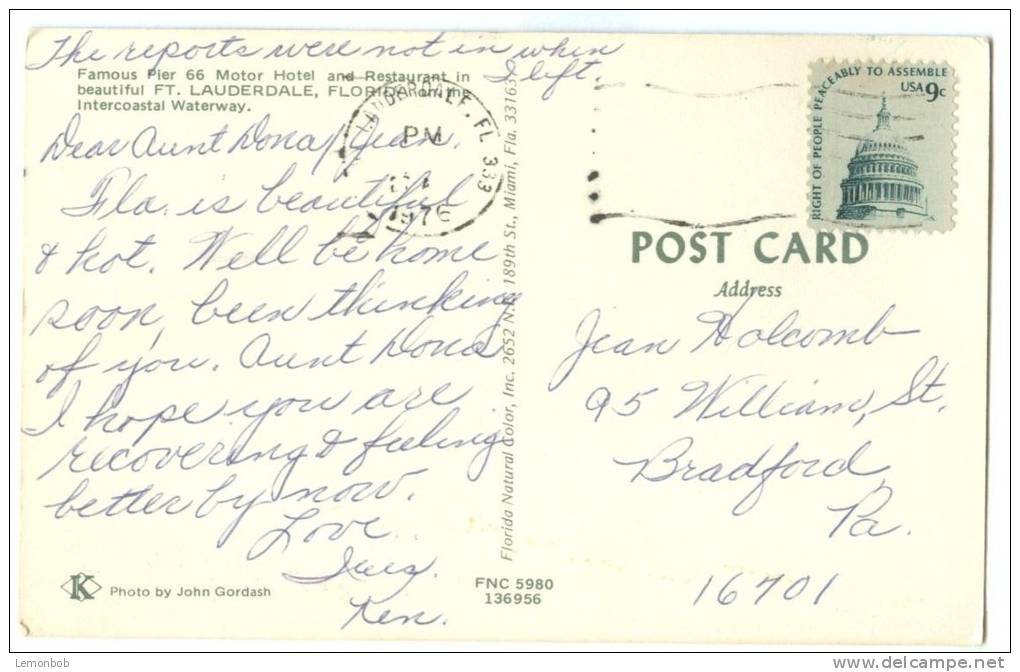 The reports were not in when
I left.
Famous Pier 66 Motor Hotel and Restaurant in
beautiful FT. LAUDERDALE, FLORIDA on the
Intercoastal Waterway.
Dear Aunt Dona, Jean,
Fla. is beautiful
& hot. Well be home
soon, been thinking
of you. Aunt Dona
I hope you are
recovering & feeling
better by now.
Love
Ken.
Photo by John Gordash
K
LAUDERDALE, FL 333
PM
1976
Florida Natural Color, Inc. 2652 N.E. 189th St., Miami, Fla. 33163
FNC 5980
136956
RIGHT OF PEOPLE PEACEABLY TO ASSEMBLE
USA 9c
POST CARD
Address
Jean Holcomb
95 William, St.
Bradford,
Pa.
16701
Lemonbob
www.delcampe.net